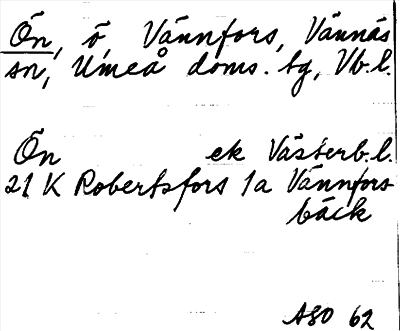 Ön, ö, Vännfors, Vännäs
sn, Umeå doms. tg, Vb.l.
Ön ek Västerb.l.
21 K Robertsfors 1a Vännfors
bäck
ASO 62